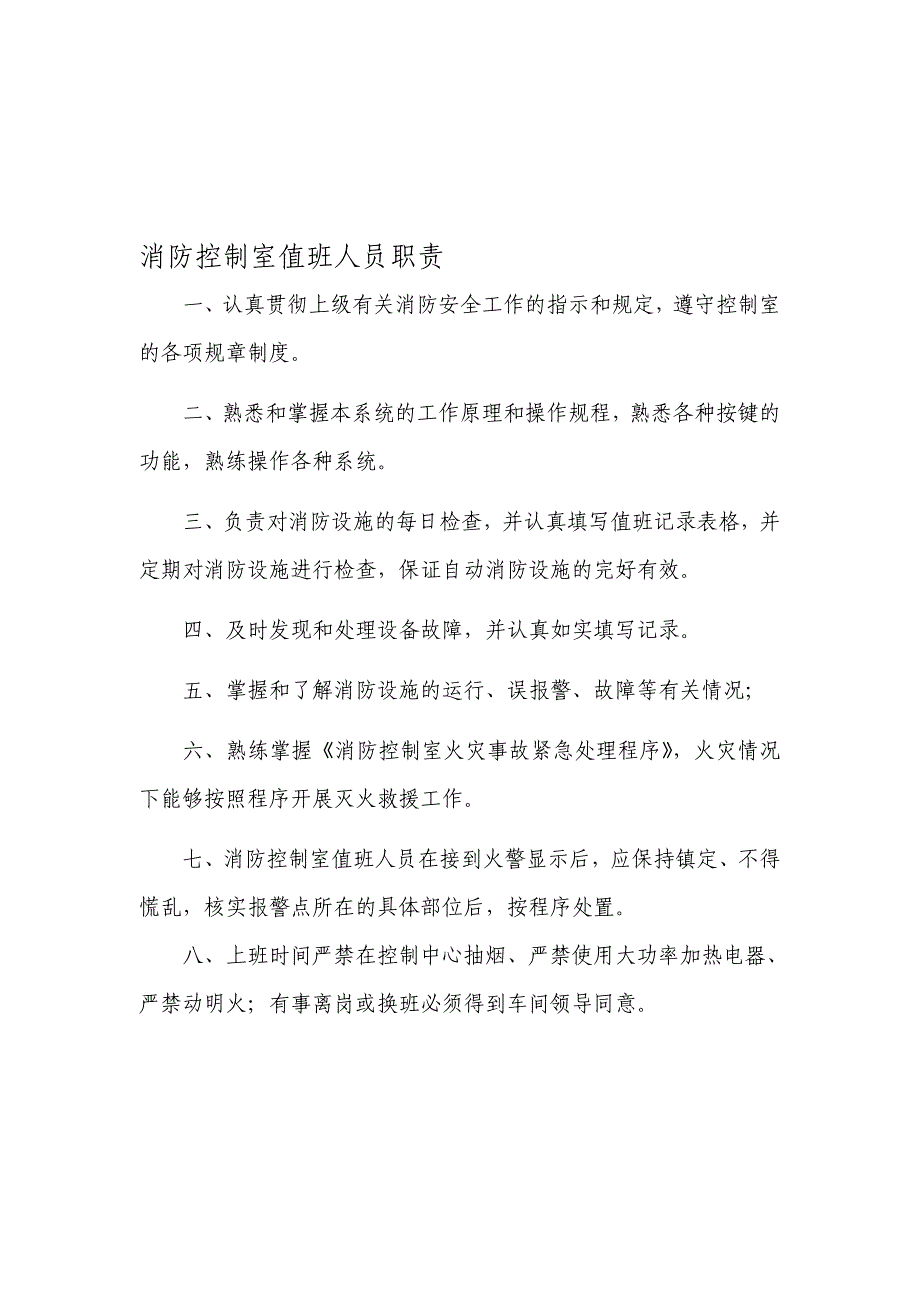 消防控制室值班人员职责
一、认真贯彻上级有关消防安全工作的指示和规定，遵守控制室
的各项规章制度。
二、熟悉和掌握本系统的工作原理和操作规程，熟悉各种按键的
功能，熟练操作各种系统。
三、负责对消防设施的每日检查，并认真填写值班记录表格，并
定期对消防设施进行检查，保证自动消防设施的完好有效。
四、及时发现和处理设备故障，并认真如实填写记录。
五、掌握和了解消防设施的运行、误报警、故障等有关情况；
六、熟练掌握《消防控制室火灾事故紧急处理程序》，火灾情况
下能够按照程序开展灭火救援工作。
七、消防控制室值班人员在接到火警显示后，应保持镇定、不得
慌乱，核实报警点所在的具体部位后，按程序处置。
八、上班时间严禁在控制中心抽烟、严禁使用大功率加热电器、
严禁动明火；有事离岗或换班必须得到车间领导同意。